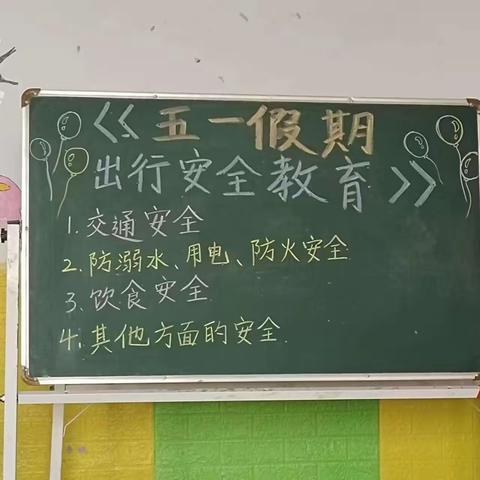 《五一假期
出行安全教育》
1.交通安全
2.防溺水、用电、防火安全
3.饮食安全
4.其他方面的安全